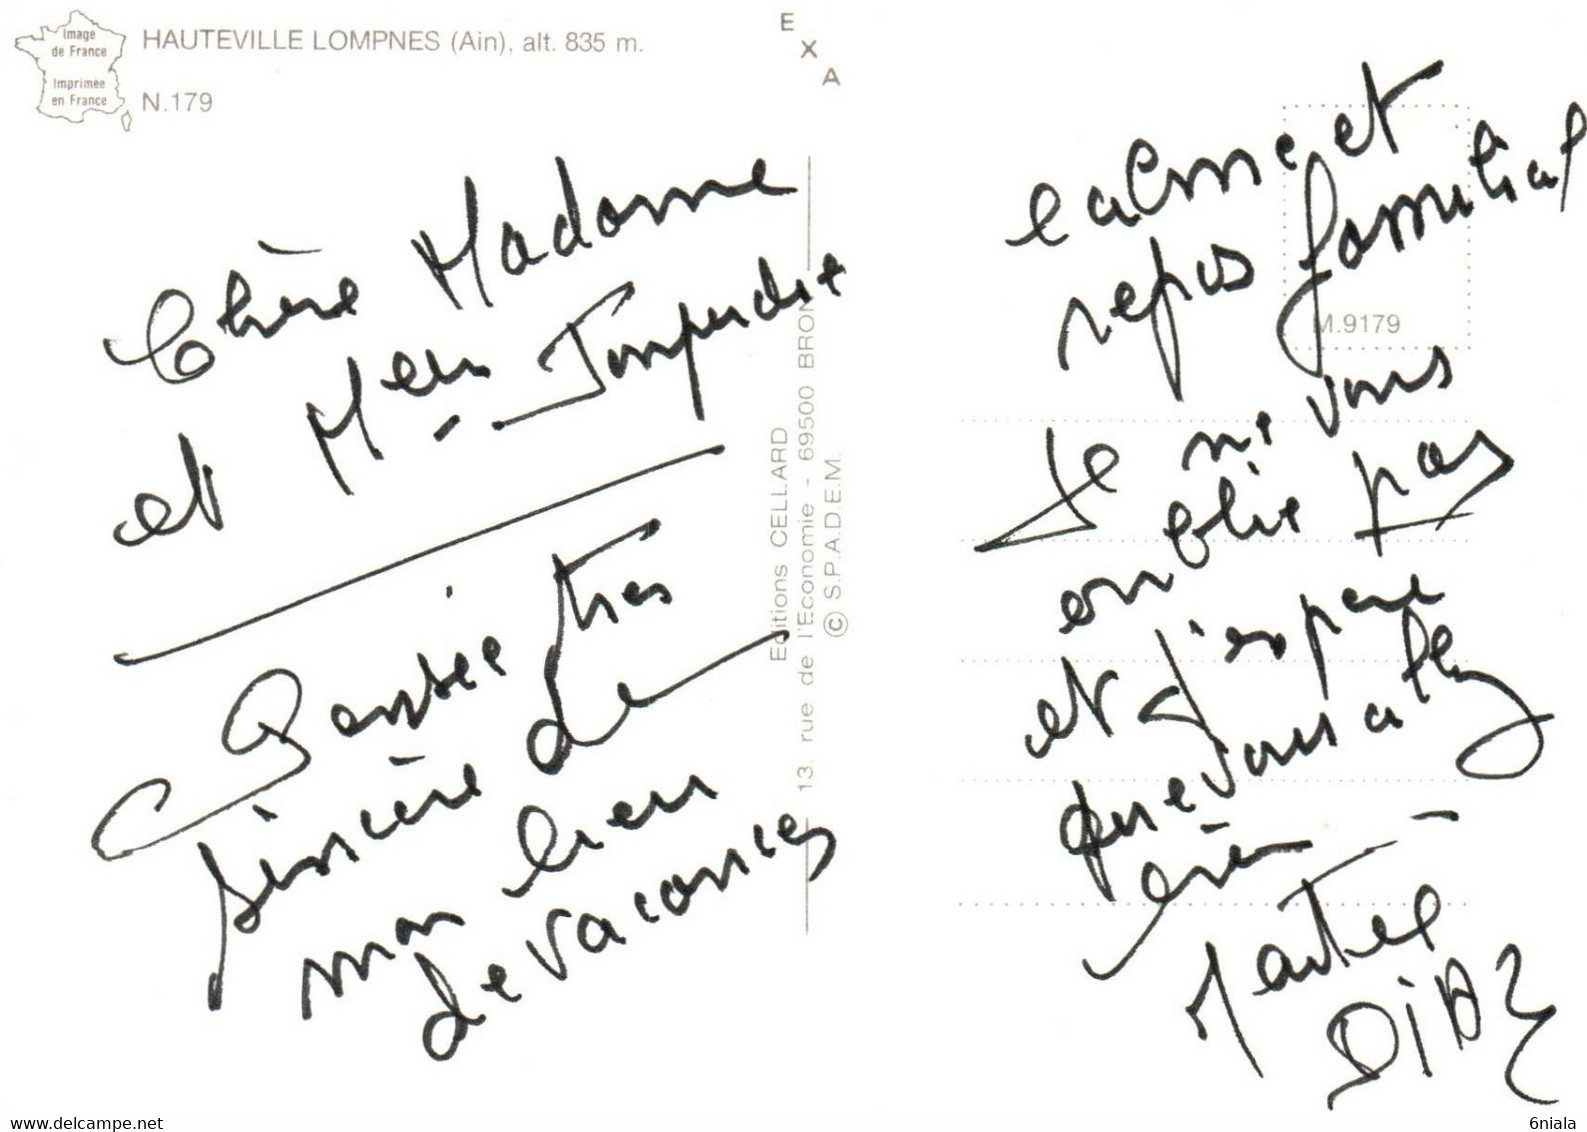 Image
de France
Imprimée
en France
HAUTEVILLE LOMPNES (Ain), alt. 835 m.
N.179
E
X
A
Chère Madame
et
Pensée très
sincère de
mon lieu
de vacances
Editions CELLARD
13. rue de l'Economie - 69500 BRON
© S.P.A.D.E.M.
calme et
repos familial
M.9179
Je ne vous
oublie pas
et j'espère
que vous allez
bien
DIAZ
6niala